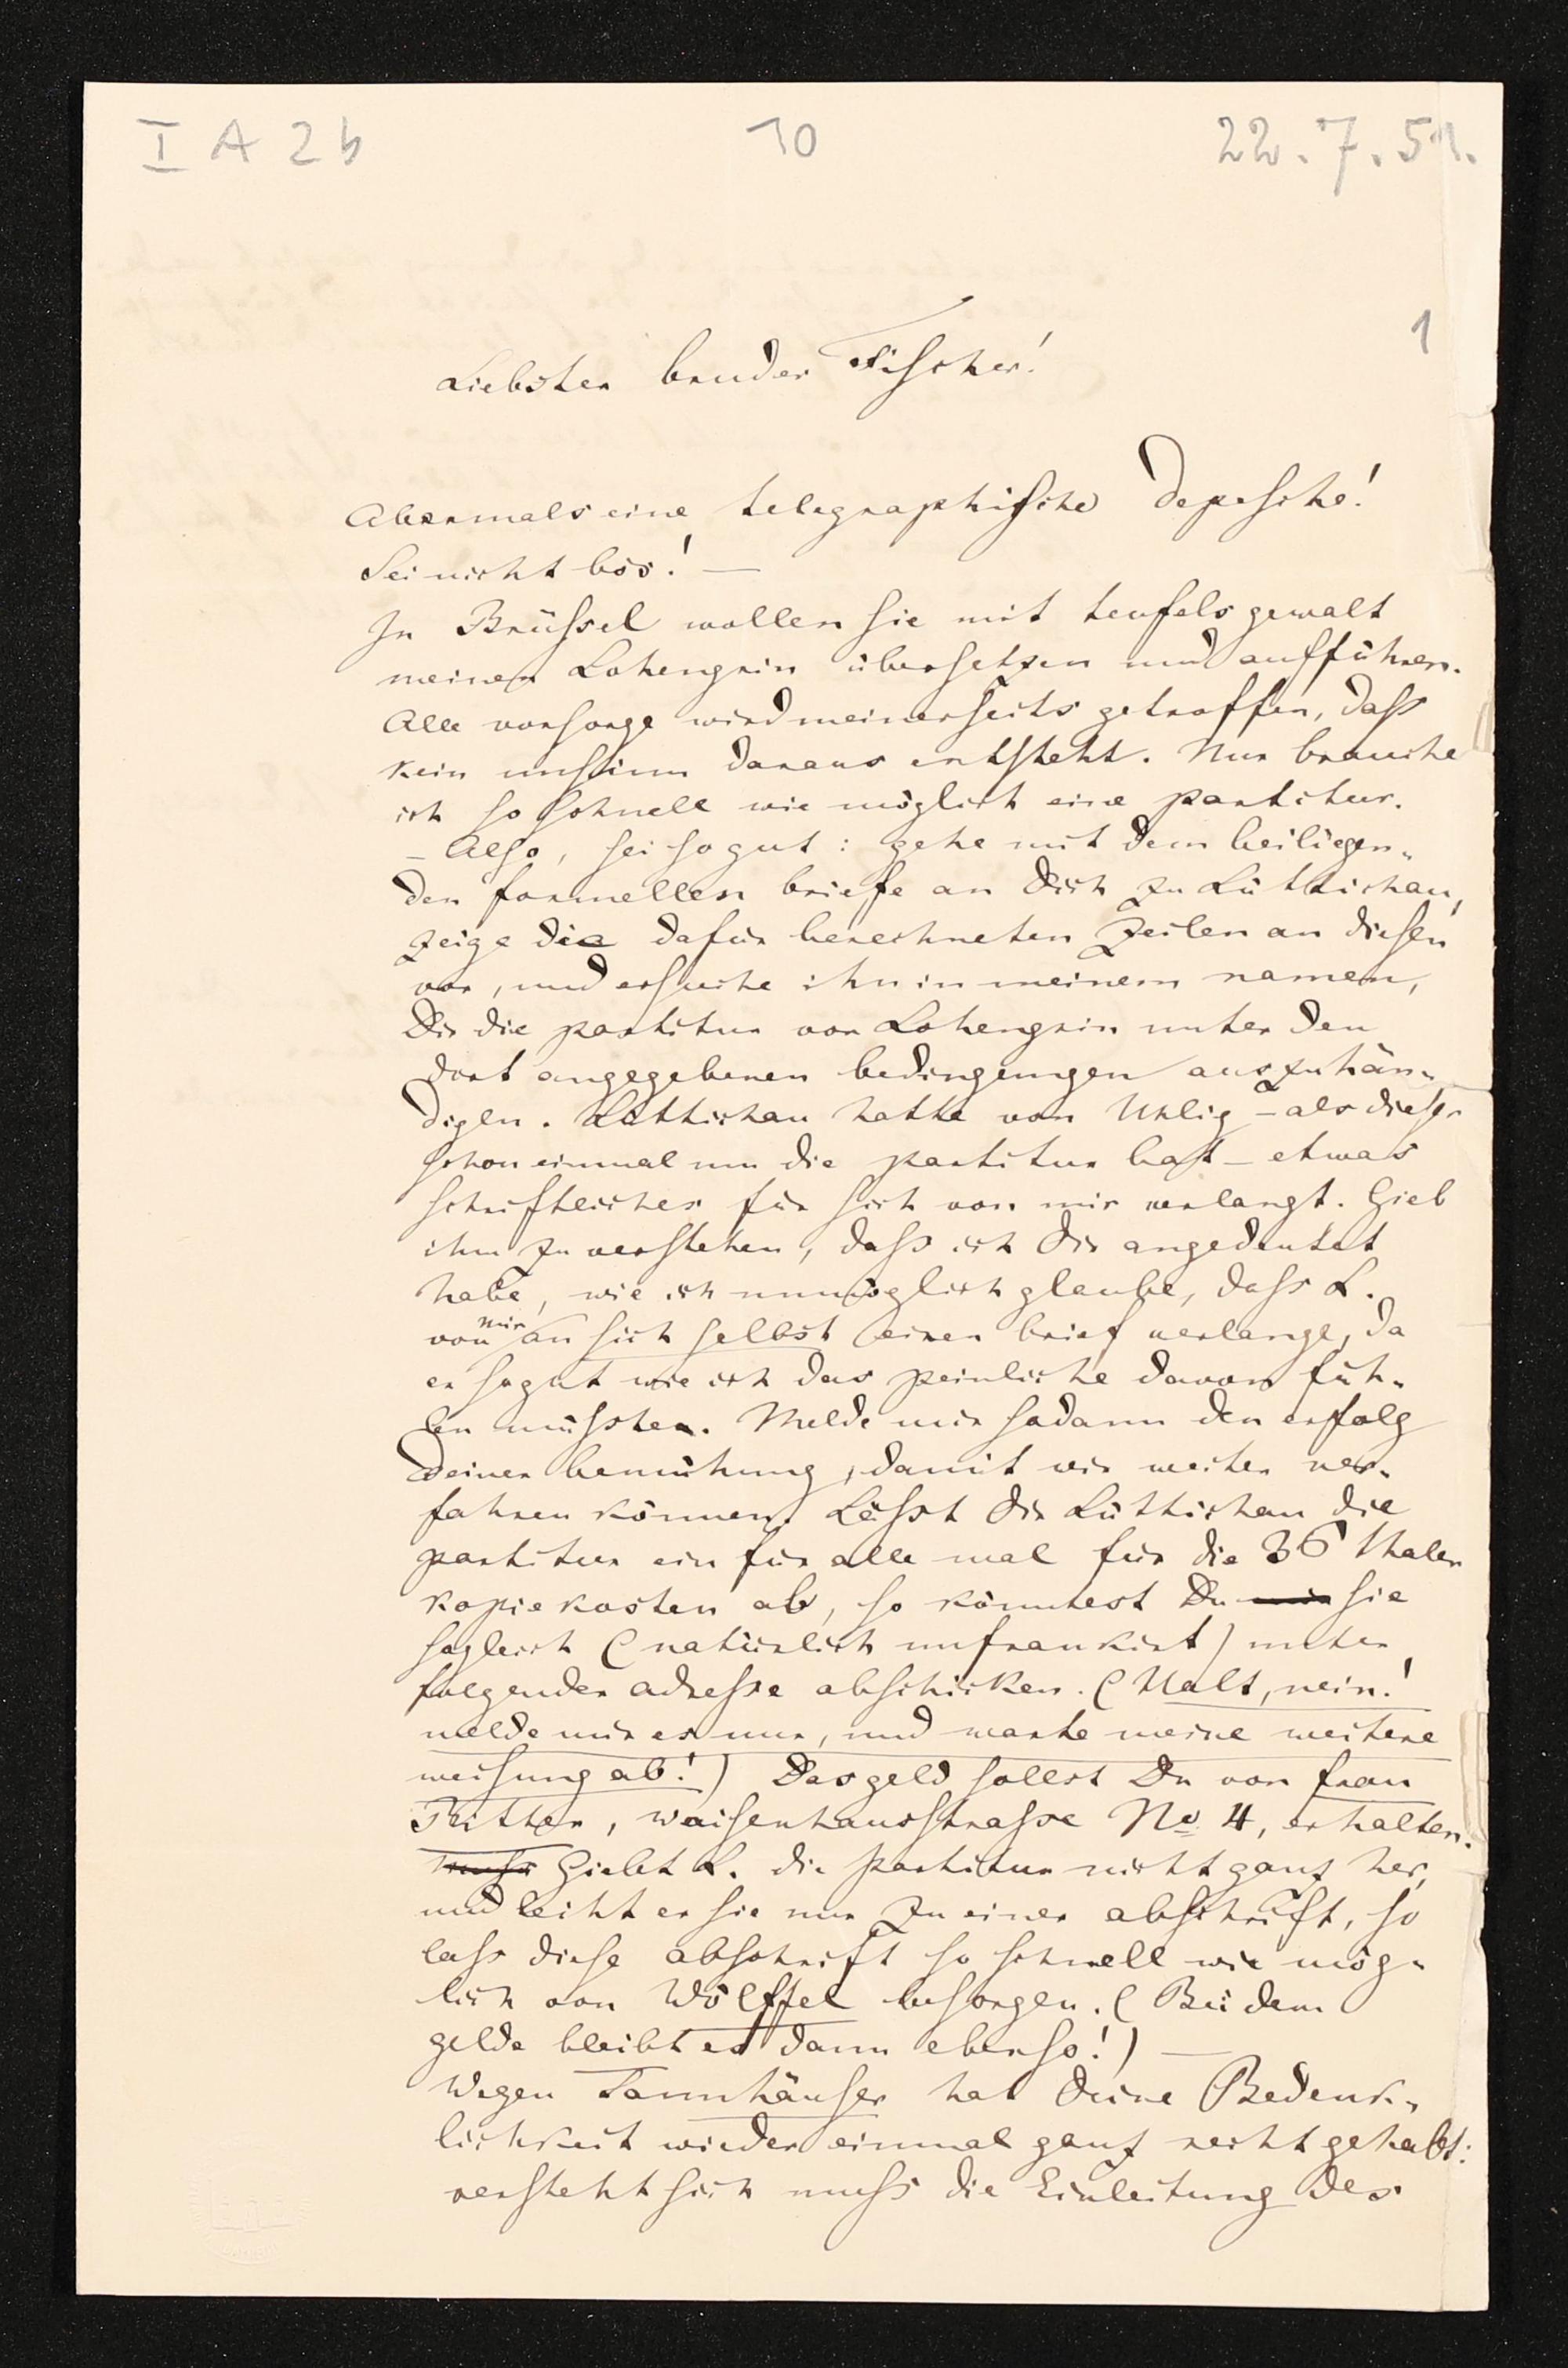 I A 2b 10 22.7.51.
1
Liebster bruder Fischer!
Abermals eine telegraphische depesche!
Sei nicht bös! —
In Brüssel wollen sie mit teufelsgewalt
meinen Lohengrin übersetzen und aufführen.
Alle vorsorge wird meinerseits getroffen, dass
kein unsinn daraus entsteht. Nur brauche
ich so schnell wie möglich eine partitur.
– Also, sei so gut: gehe mit dem beiliegen-
den formellen briefe an Dich zu Lüttichau,
zeige die dafür berechneten Zeilen an diesen
vor, und ersuche ihn in meinem namen,
Dir die partitur von Lohengrin unter den
dort angegebenen bedingungen auszuhän-
digen. Lüttichau hatte von Uhlig – als dieser
schon einmal um die partitur bat – etwas
schriftliches für sich von mir verlangt. Gieb
ihm zu verstehen, dass ich Dir angedeutet
habe, wie ich unmöglich glaube, dass L.
von mir an sich selbst einen brief verlange, da
er sogut wie ich das peinliche davon füh-
len müsste. Melde mir sodann den erfolg
Deiner bemühung, damit wir weiter ver-
fahren können. Lässt Dir Lüttichau die
partitur ein für alle mal für die 36 thaler
kopiekosten ab, so könntest Du mir sie
sogleich (natürlich unfrankirt) unter
folgender adresse abschicken. (Halt, nein!
melde mir es nur, und warte meine weitere
weisung ab!) Das geld sollst Du von frau
Ritter, waisenhausstrasse No 4, erhalten.
Giebt L. die partitur nicht ganz her,
und leiht er sie nur zu einer abschrift, so
lass diese abschrift so schnell wie mög-
lich von Wölffel besorgen. (Bei dem
gelde bleibt es dann ebenso!) —
Wegen Tannhäuser hat Deine Bedenk-
lichkeit wieder einmal ganz recht gehabt:
versteht sich muss die Einleitung des